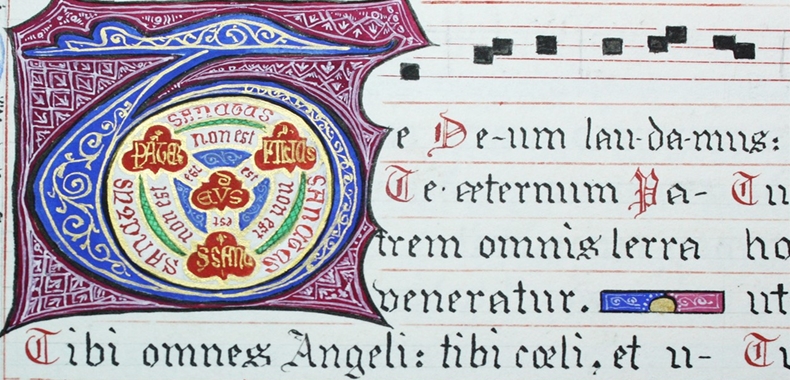 Te De-um lau-da-mus:
Te æternum Pa-
trem omnis terra
veneratur.
Tibi omnes Angeli: tibi cœli, et u-
Tu
ho
ut
Tu
SANCTUS
non est
PATER
FILIUS
est
est
DEUS
est
non est
non est
S SANC
SANCTUS
SANCTUS